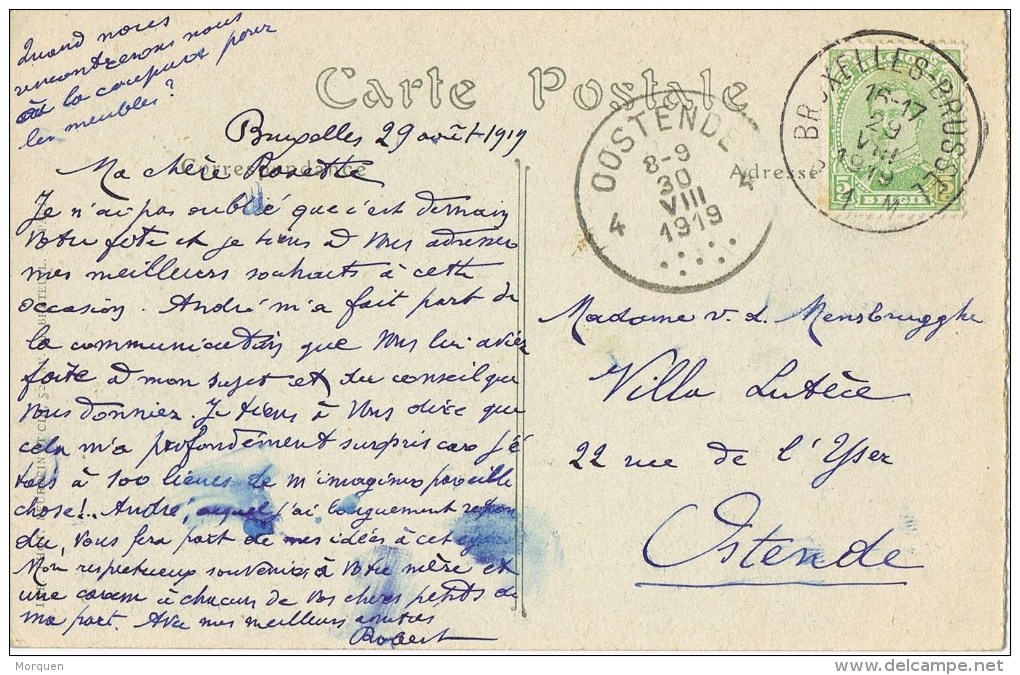 Quand nous
rencontrerons nous
où la coupure pour
les meubles?
Carte Postale
Correspondance
Adresse
BRUXELLES-BRUSSEL
16-17
29
VIII
1919
BELGIE
5
5
OOSTENDE
8-9
30
VIII
1919
4
4
Bruxelles 29 août 1919
Ma chère Rosette
Je n'ai pas oublié que c'est demain
votre fête et je tiens à vous adresser
mes meilleurs souhaits à cette
occasion. André m'a fait part de
la communication que vous lui aviez
faite à mon sujet et du conseil que
vous donniez. Je tiens à vous dire que
cela m'a profondément surpris car j'é
tais à 100 lieues de m'imaginer pareille
chose!.. André, auquel j'ai longuement répon
du, vous fera part de mes idées à cet
Mon respectueux souvenir à votre mère et
une à chacun de vos chers petits de
ma part. Avec mes meilleures amitiés
Robert
Madame v. d. Mensbrugghe
Villa Lutèce
22 rue de l'Yser
Ostende
Morquen
delcampe.net